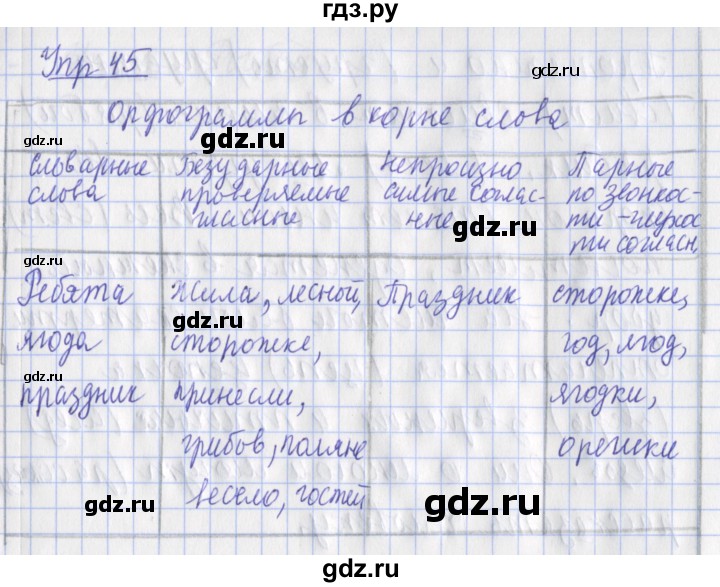 гдз.ру
Упр 45
Орфограммы в корне слова
Словарные слова
Безударные проверяемые гласные
Непроизносимые согласные
Парные по звонкости-глухости согласн.
Ребята
ягода
праздник
Жила, лесной,
сторожке,
принесли,
грибов, поляне
весело, гостей
Праздник
сторожке,
год, ягод,
ягодки,
орешки
gdz.ru
gdz.ru
gdz.ru
gdz.ru
gdz.ru
gdz.ru
gdz.ru
gdz.ru
gdz.ru
gdz.ru
gdz.ru
gdz.ru
gdz.ru